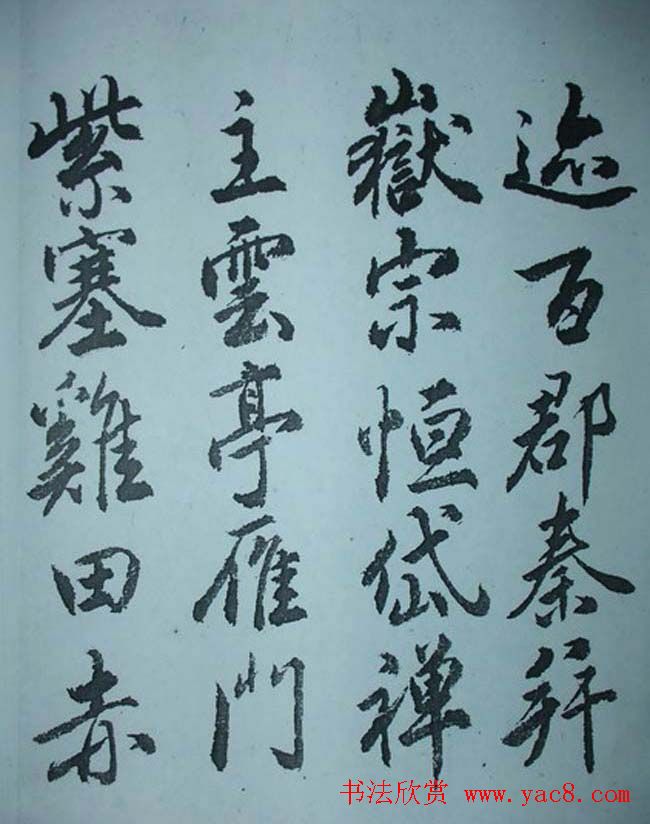 迹百郡秦并
嶽宗恒岱禅
主雲亭雁門
紫塞雞田赤
书法欣赏 www.yac8.com